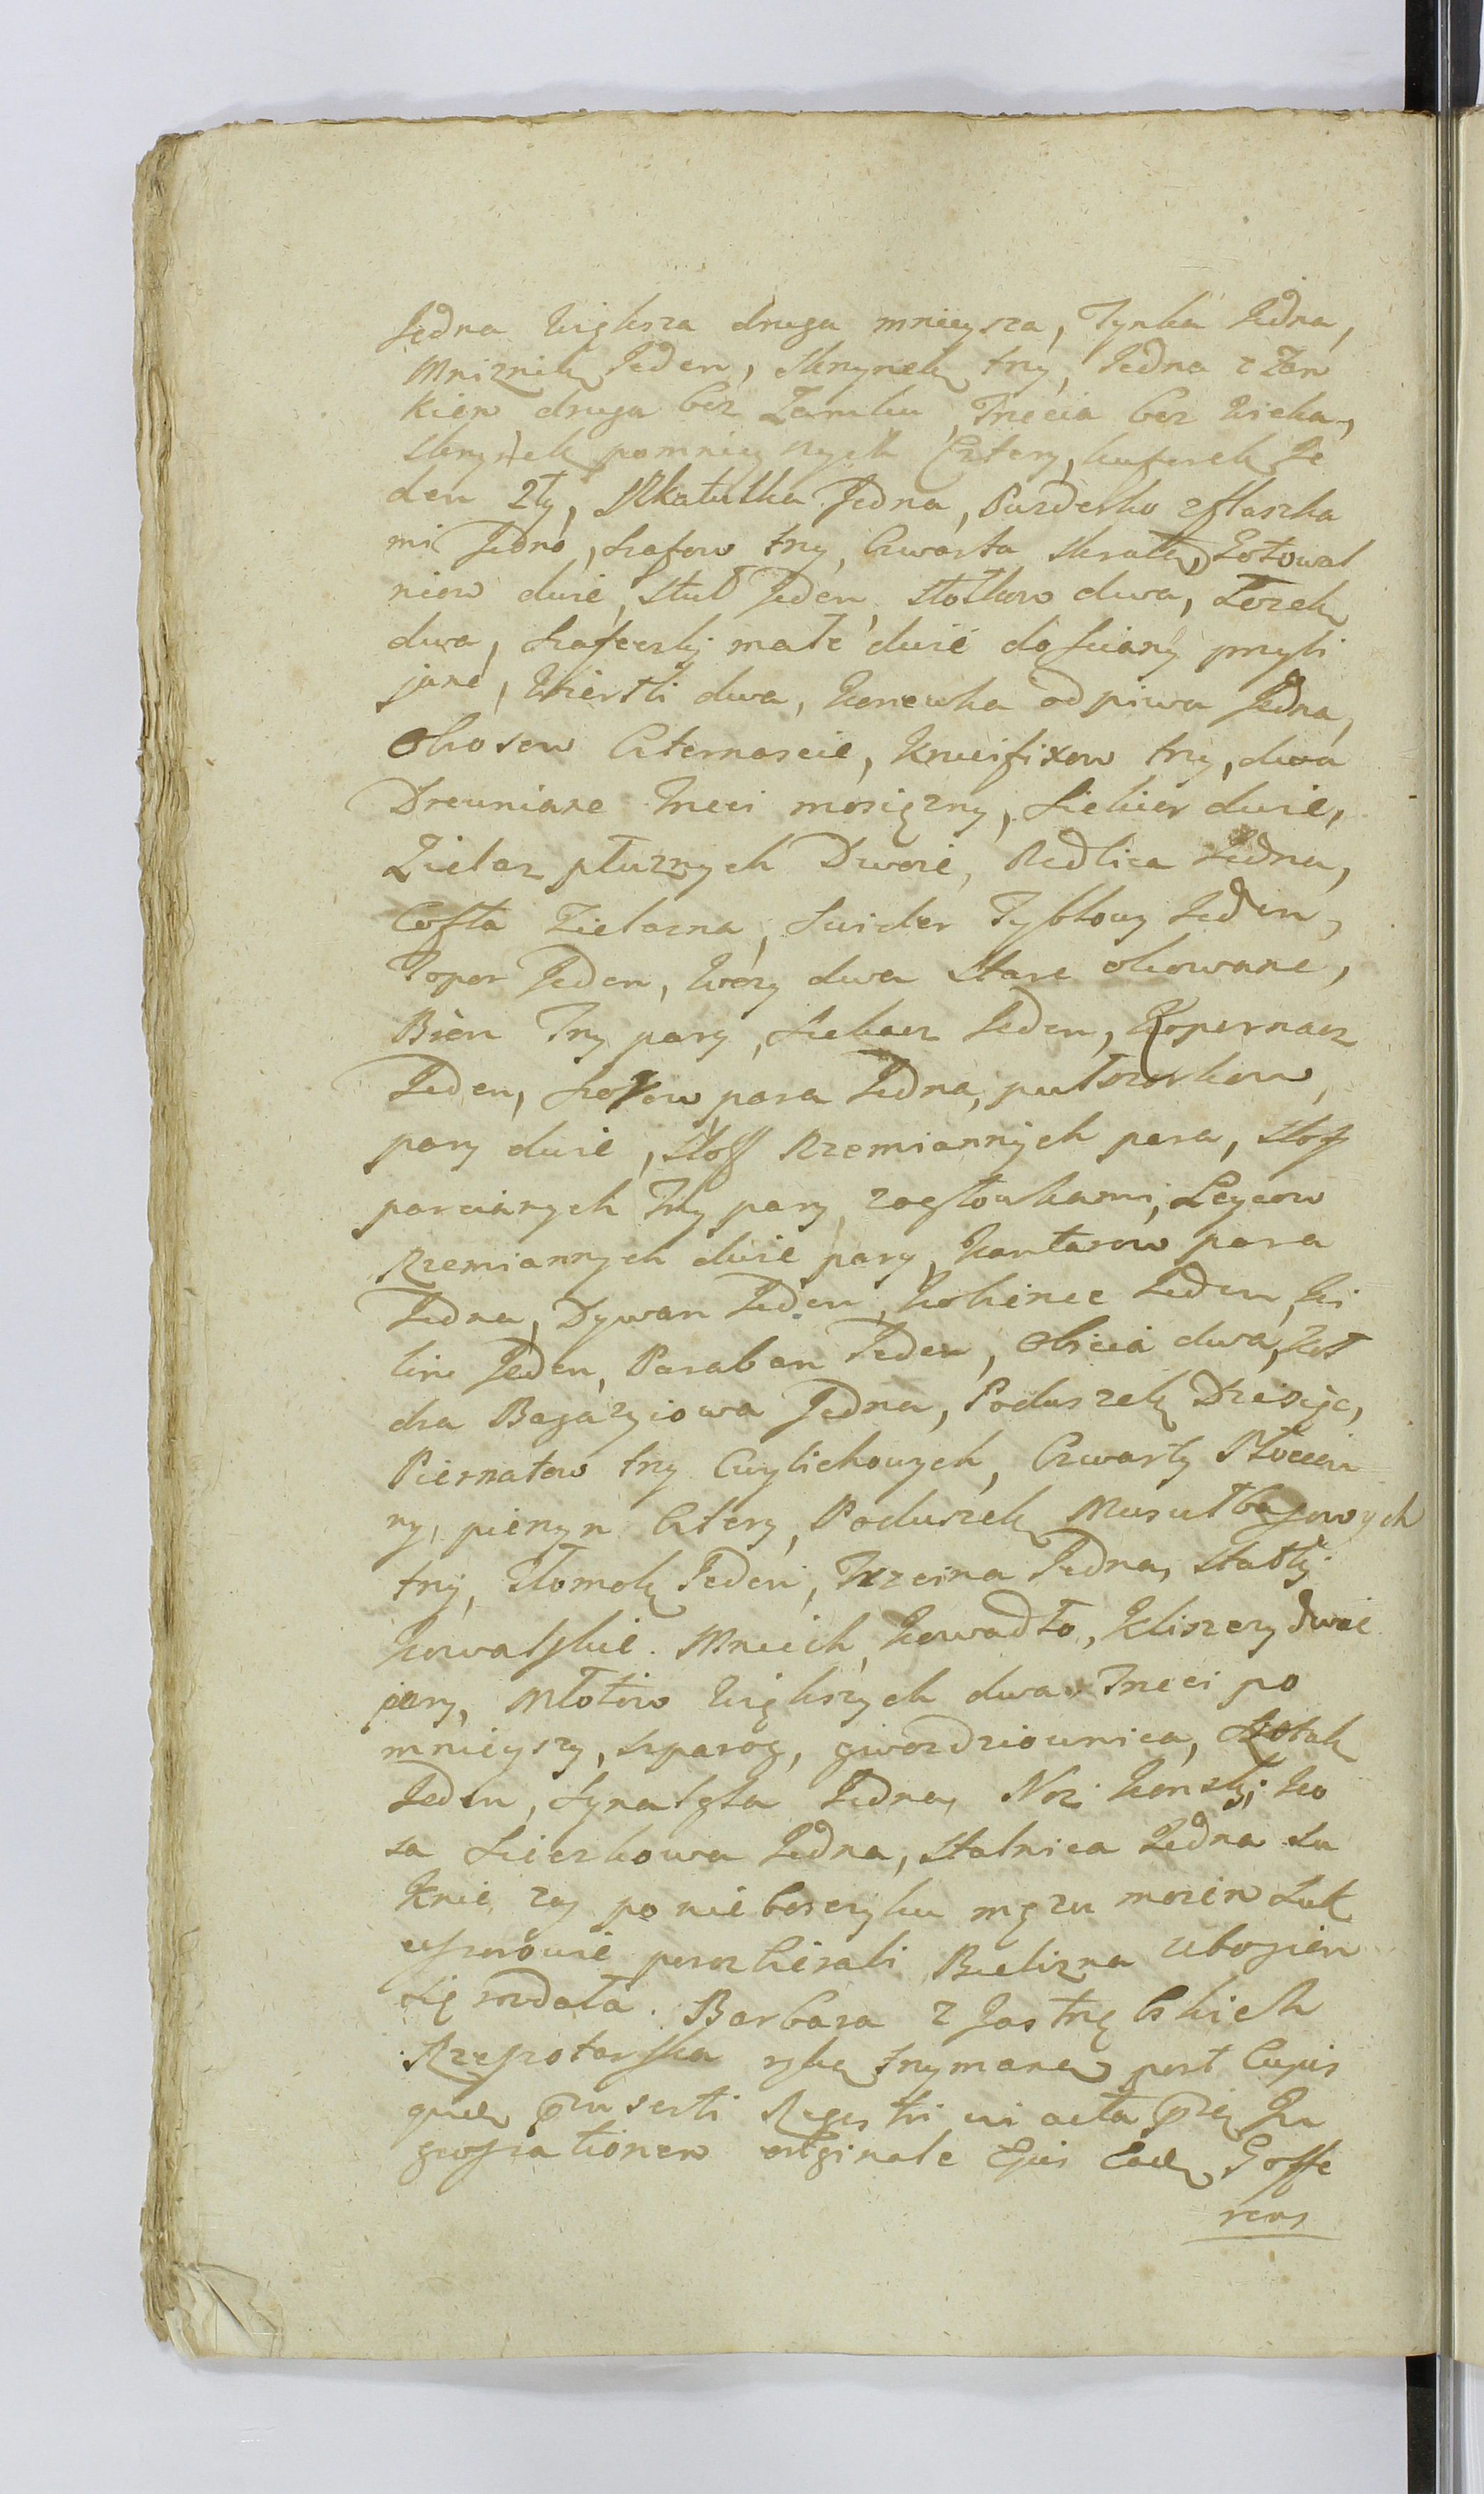 Jedna większa druga mnieysza, Tynka Jedna,
Mniznik Jeden, skrynek try, Jedna z Zam
kiem druga bez Zamku, Trzecia bez wieka,
skrynek pomnieyszych Cztery, kuferek Je
den zły, Szkatułka Jedna, Puzderko z flaszka
mi Jedno, szafow try, Czwarta skrata, Gotowal
niow dwie, stuł Jeden stołkow dwa, Łozek
dwa, szafeczki małe dwie do sciany przybi
jane, Wiertli dwa, Konewka od piwa Jedna,
Obrosow Czternascie, Krucifixow try, dwa
Drewniane trzeci mosiężny, siekier dwie,
Zielaz płuznych Dwoie, Redlica Jedna,
Cosła Zielazna, swider Tyblowy Jeden,
Topor Jeden, Wozy dwa stare okowane,
Bron Try pary, siekacz Jeden, Kopernacz
Jeden, para Jedna, putorzskow
pary dwie, słoß Rzemiannych para, słoß
parcianych Try pary, z nagłowkami, Leycow
Rzemiannych dwie pary, kantarow para
Jedna, Dywan Jeden, Kobinec Jeden, ki
lim Jeden, Paraban Jeden, Obicia dwa, koł
dra Bagazyiowa Jedna, Poduszek Dziesięc,
Piernatow try Cwylichowych, Czwarty Płocien
ny, pierzyn Cztery, Poduszek Musułbasowych
try, Tłomok Jeden, Trzcina Jedna, statki
Kowalskie. Mniech, kowadło, kliszczy dwie
pary, Młotow większych dwa Trzeci po
mnieyszy, szparog, gwozdziownica,
Jeden, Jedna, Noz konski, ko
sa sieczkowa Jedna, stalnica Jedna su
knie zas po nieboszczyku męzu moiem Suk
cessorowie porozbierali Bielizna ubogiem
się rozdała. Barbara z Jastrzębskich
Rzeszotarska ręką trzymaną post Cujus
quidem Pruserti Regestri in acta Prae In
grossationem orginale Ejus Eadem Offe
rens